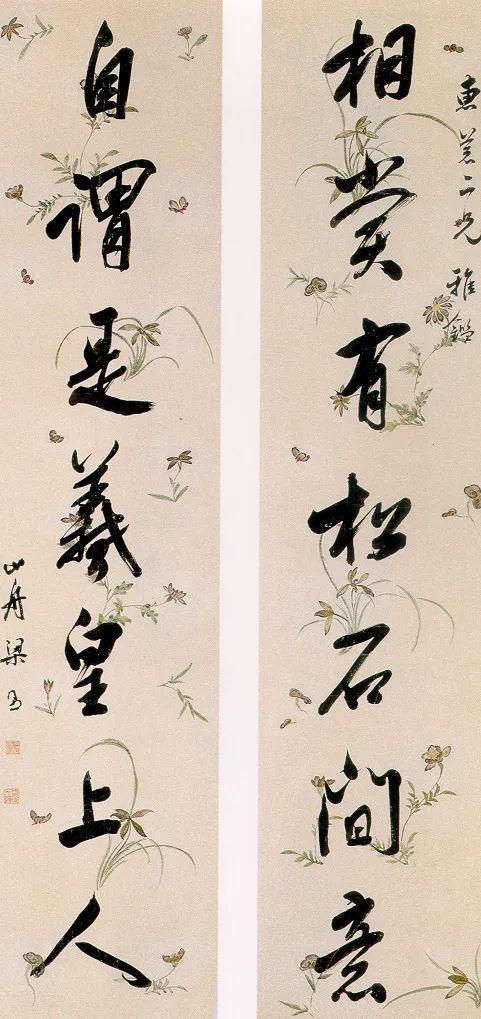 惠二兄雅鑑
相賞有松石間意
自謂是羲皇上人
山舟梁